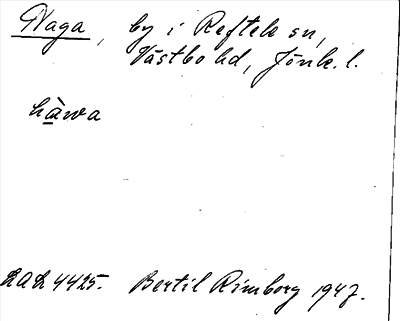 Haga, by i Reftele sn,
Västbo hd, Jönk. l.
hàwa
LAL 4425. Bertil Rimborg 1947.